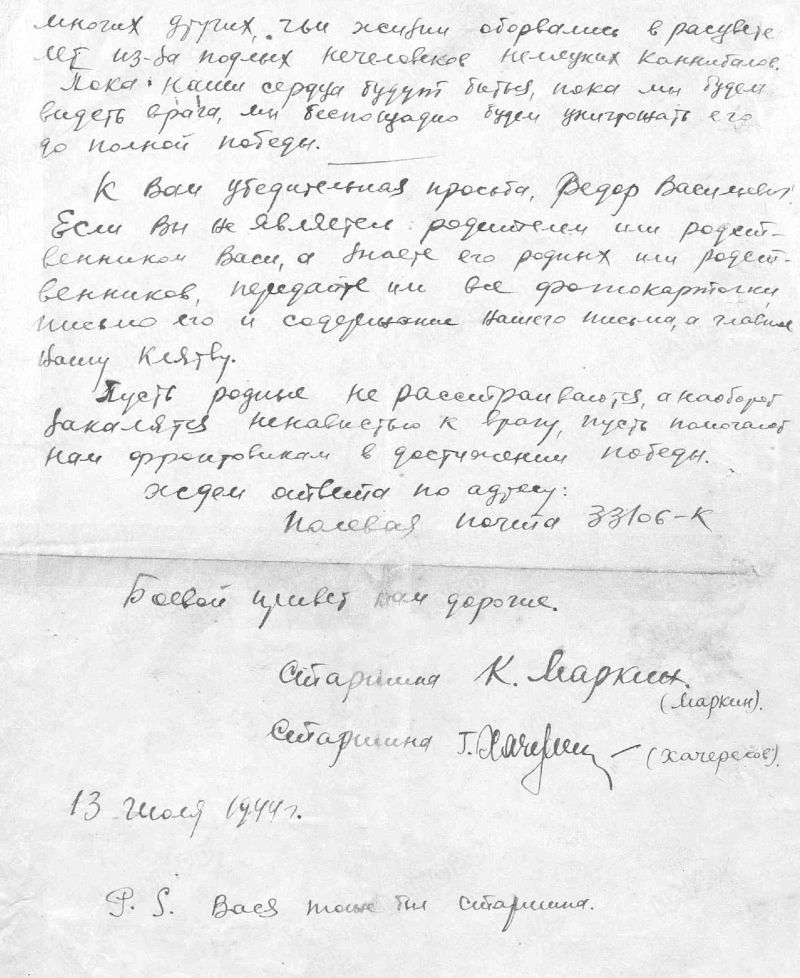 многих других, чьи жизни оборвались в расцвете
лет из-за подлых нечеловеков немецких каннибалов.
Пока наши сердца будут биться, пока мы будем
видеть врага, мы беспощадно будем уничтожать его
до полной победы.
К Вам убедительная просьба, Федор Васильевич!
Если Вы не являетесь родителем или родст-
венником Васи, а знаете его родных или родст-
венников, передайте им все фотокарточки,
письмо его и содержание нашего письма, а главное
нашу клятву.
Пусть родные не расстраиваются, а наоборот
закалятся ненавистью к врагу, пусть помогают
нам фронтовикам в достижении победы.
Ждем ответа по адресу:
Полевая почта 33106-К
Боевой привет вам дорогие.
Старшина К. Маркин.
(Маркин).
Старшина Г. (Хачересов).
13 июля 1944 г.
P. S. Вася тоже был старшина.